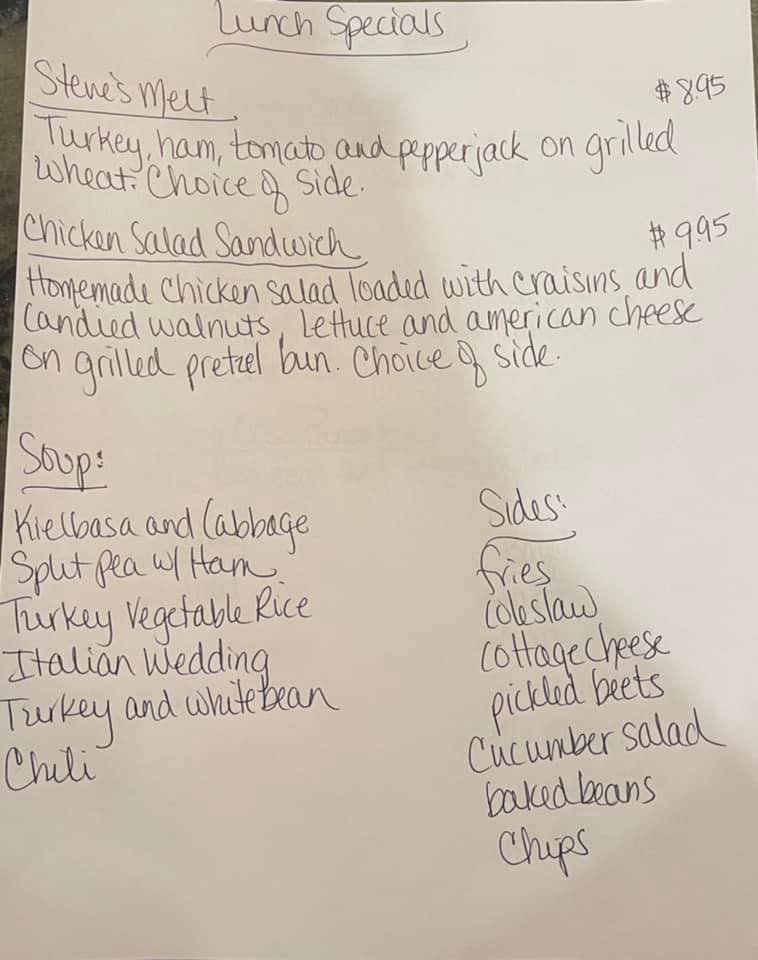 Lunch Specials
Steve's Melt $8.95
Turkey, ham, tomato and pepperjack on grilled
wheat. Choice of side.
Chicken Salad Sandwich $9.95
Homemade chicken salad loaded with craisins and
candied walnuts, lettuce and american cheese
on grilled pretzel bun. Choice of side.
Soup:
Kielbasa and Cabbage
Split pea w/ Ham
Turkey Vegetable Rice
Italian Wedding
Turkey and white bean
Chili
Sides:
fries
coleslaw
cottage cheese
pickled beets
Cucumber salad
baked beans
Chips